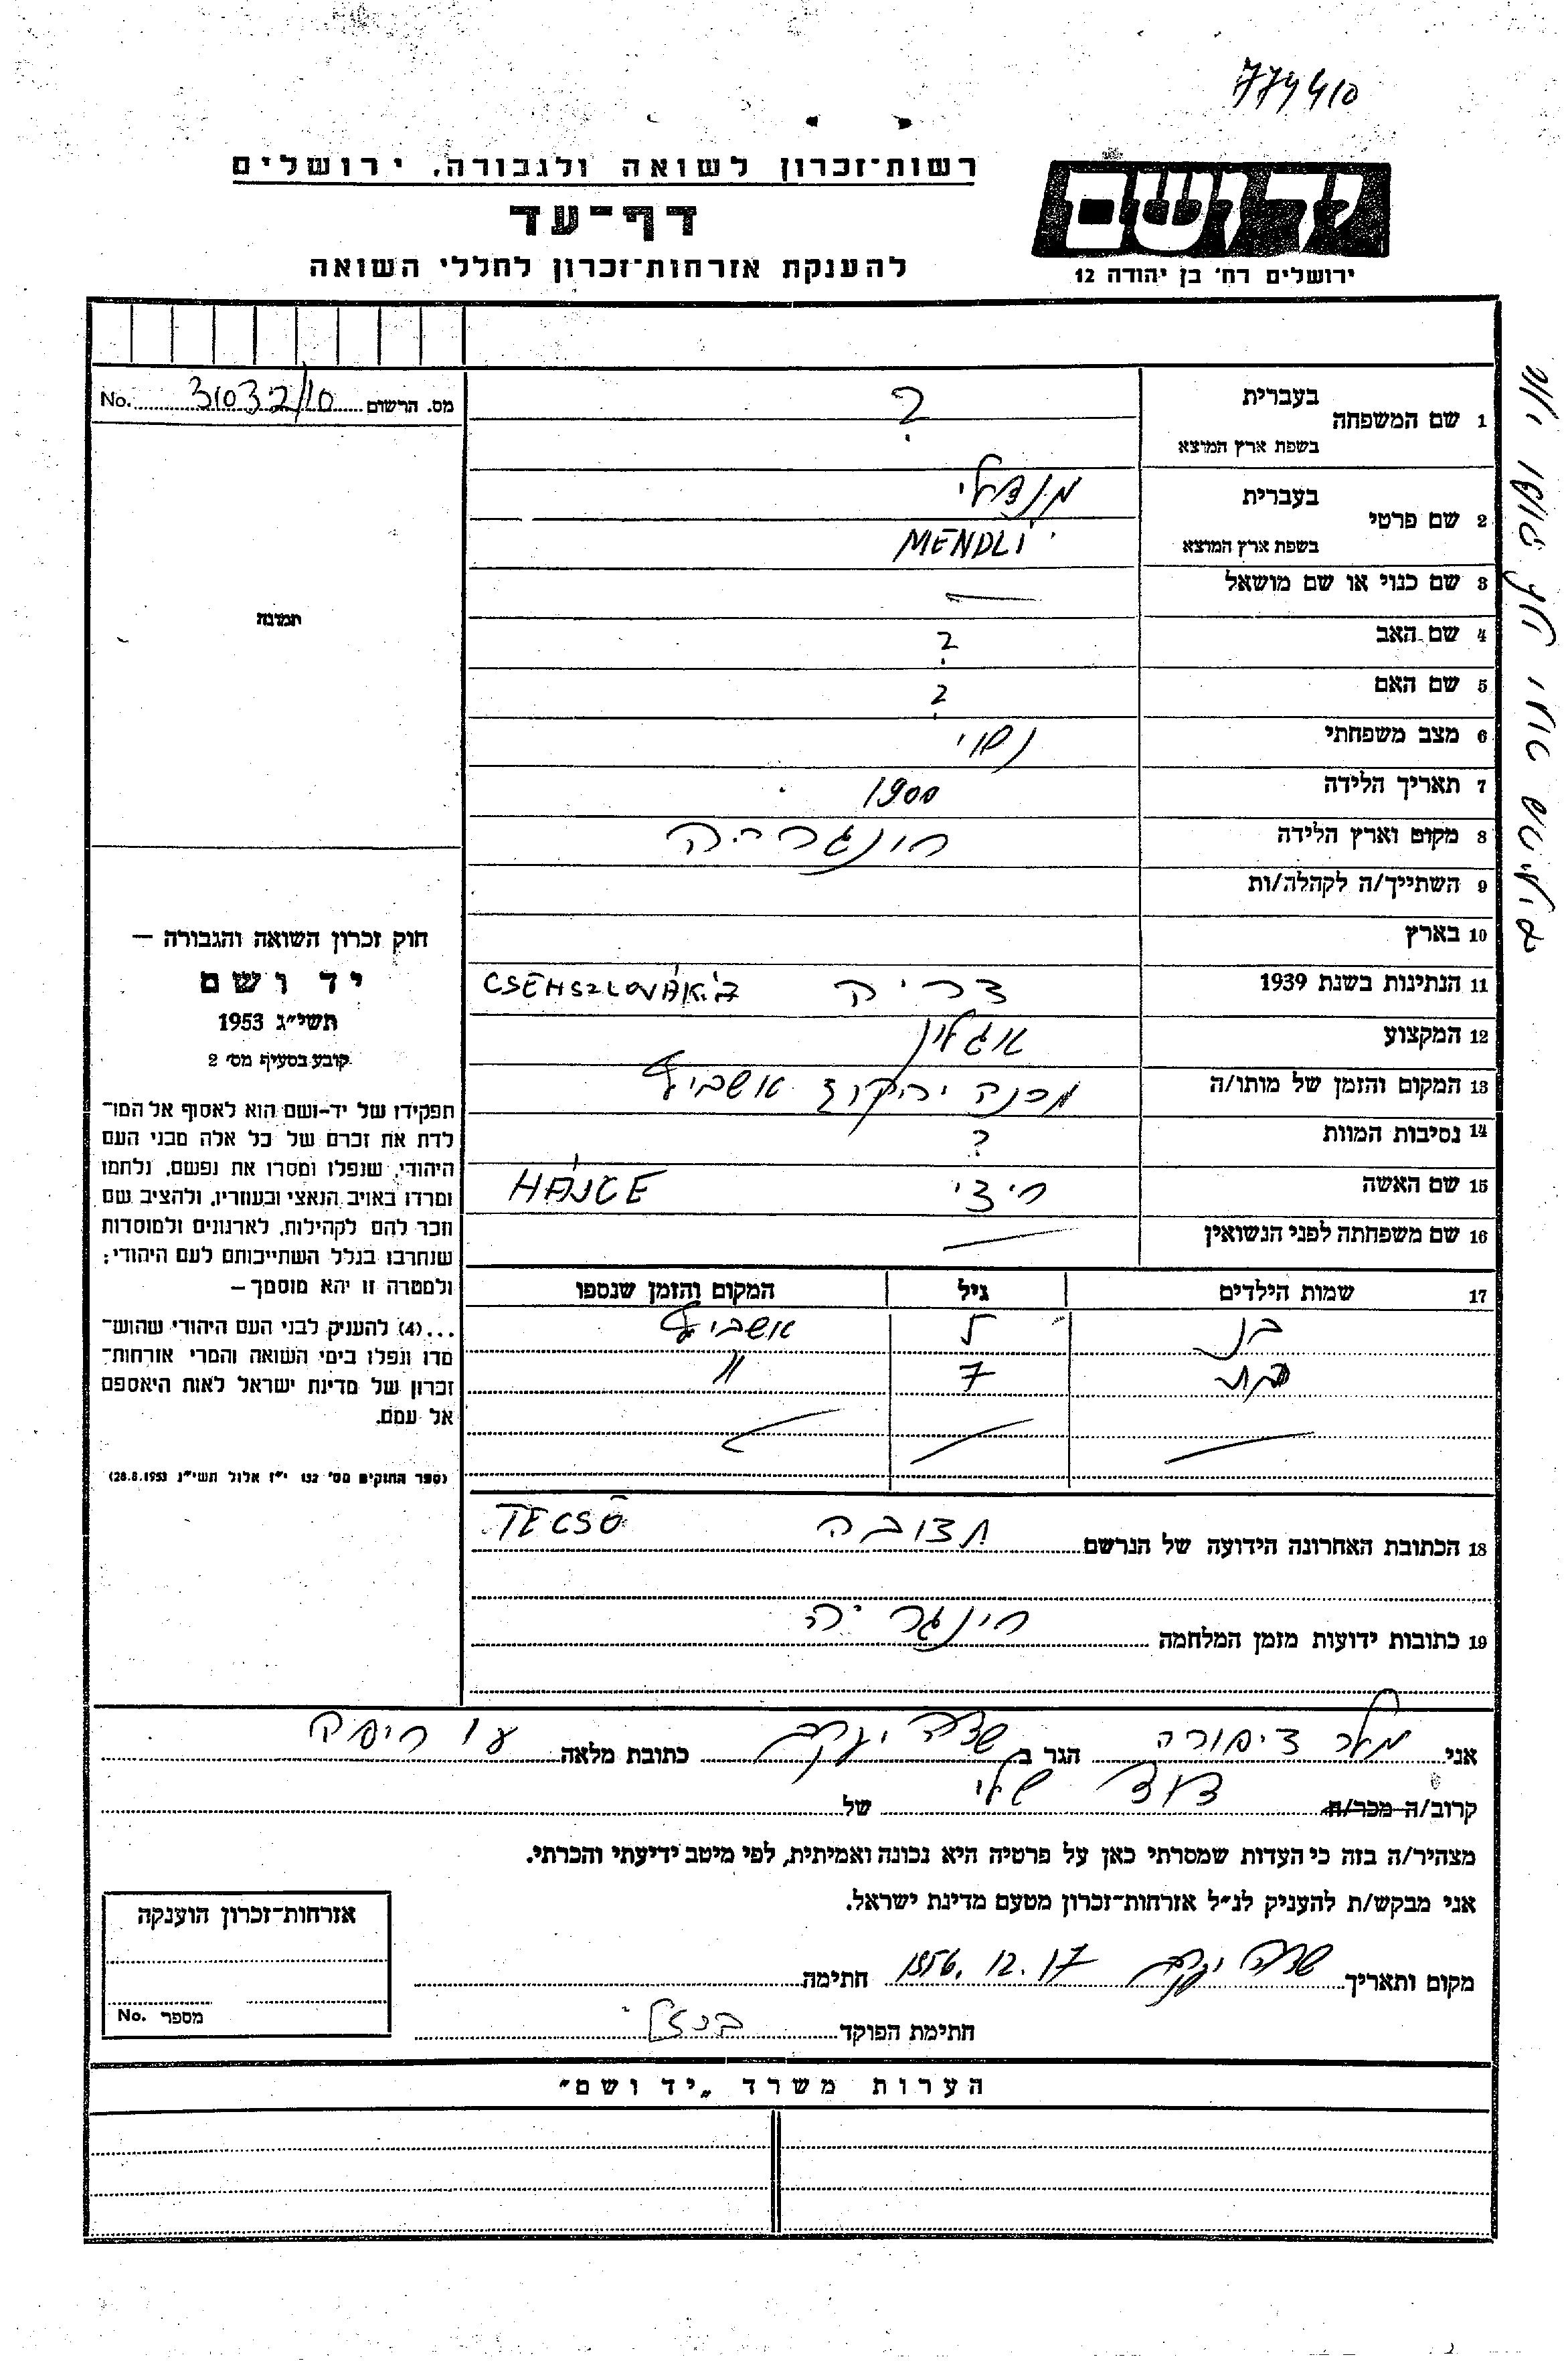 774410
רשות־זכרון לשואה ולגבורה, ירושלים
דף־עד
להענקת אזרחות־זכרון לחללי השואה
יד ושם
ירושלים רח' בן יהודה 12
מס. הרשום 31032/10 No.
1 שם המשפחה בעברית ?
בשפת ארץ המוצא
2 שם פרטי בעברית מנדלי
בשפת ארץ המוצא MENDLI
3 שם כנוי או שם מושאל —
4 שם האב ?
5 שם האם ?
6 מצב משפחתי נשוי
7 תאריך הלידה 1900
8 מקום וארץ הלידה הונגריה
9 השתייך/ה לקהלה/ות
10 בארץ
11 הנתינות בשנת 1939
12 המקצוע
13 המקום והזמן של מותו/ה מחנה אושביץ
14 נסיבות המוות ?
15 שם האשה HÁJCE
16 שם משפחתה לפני הנשואין —
17 שמות הילדים גיל המקום והזמן שנספו
בן 5 אושביץ
בת 7 "
18 הכתובת האחרונה הידועה של הנרשם TECSŐ
19 כתובות ידועות מזמן המלחמה הונגריה
תמונה
חוק זכרון השואה והגבורה —
יד ושם
תשי״ג 1953
קובע בסעיף מס' 2
תפקידו של יד־ושם הוא לאסוף אל המו־
לדת את זכרם של כל אלה מבני העם
היהודי, שנפלו ומסרו את נפשם, נלחמו
ומרדו באויב הנאצי ובעוזריו, ולהציב שם
וזכר להם לקהילות, לארגונים ולמוסדות
שנחרבו בגלל השתייכותם לעם היהודי;
ולמטרה זו יהא מוסמך —
...(4) להעניק לבני העם היהודי שהוש־
מדו ונפלו בימי השואה והמרי אזרחות־
זכרון של מדינת ישראל לאות היאספם
אל עמם.
(ספר החוקים מס' 132 י״ז אלול תשי״ג 28.8.1953)
אני ציפורה הגר ב שדה יעקב כתובת מלאה חיפה
קרוב/ה מכר/ה דוד שלי של
מצהיר/ה בזה כי העדות שמסרתי כאן על פרטיה היא נכונה ואמיתית, לפי מיטב ידיעתי והכרתי.
אני מבקש/ת להעניק לנ״ל אזרחות־זכרון מטעם מדינת ישראל.
מקום ותאריך שדה יעקב 17.12.1956 חתימה
חתימת הפוקד
אזרחות־זכרון הוענקה
מספר No.
הערות משרד „יד ושם"